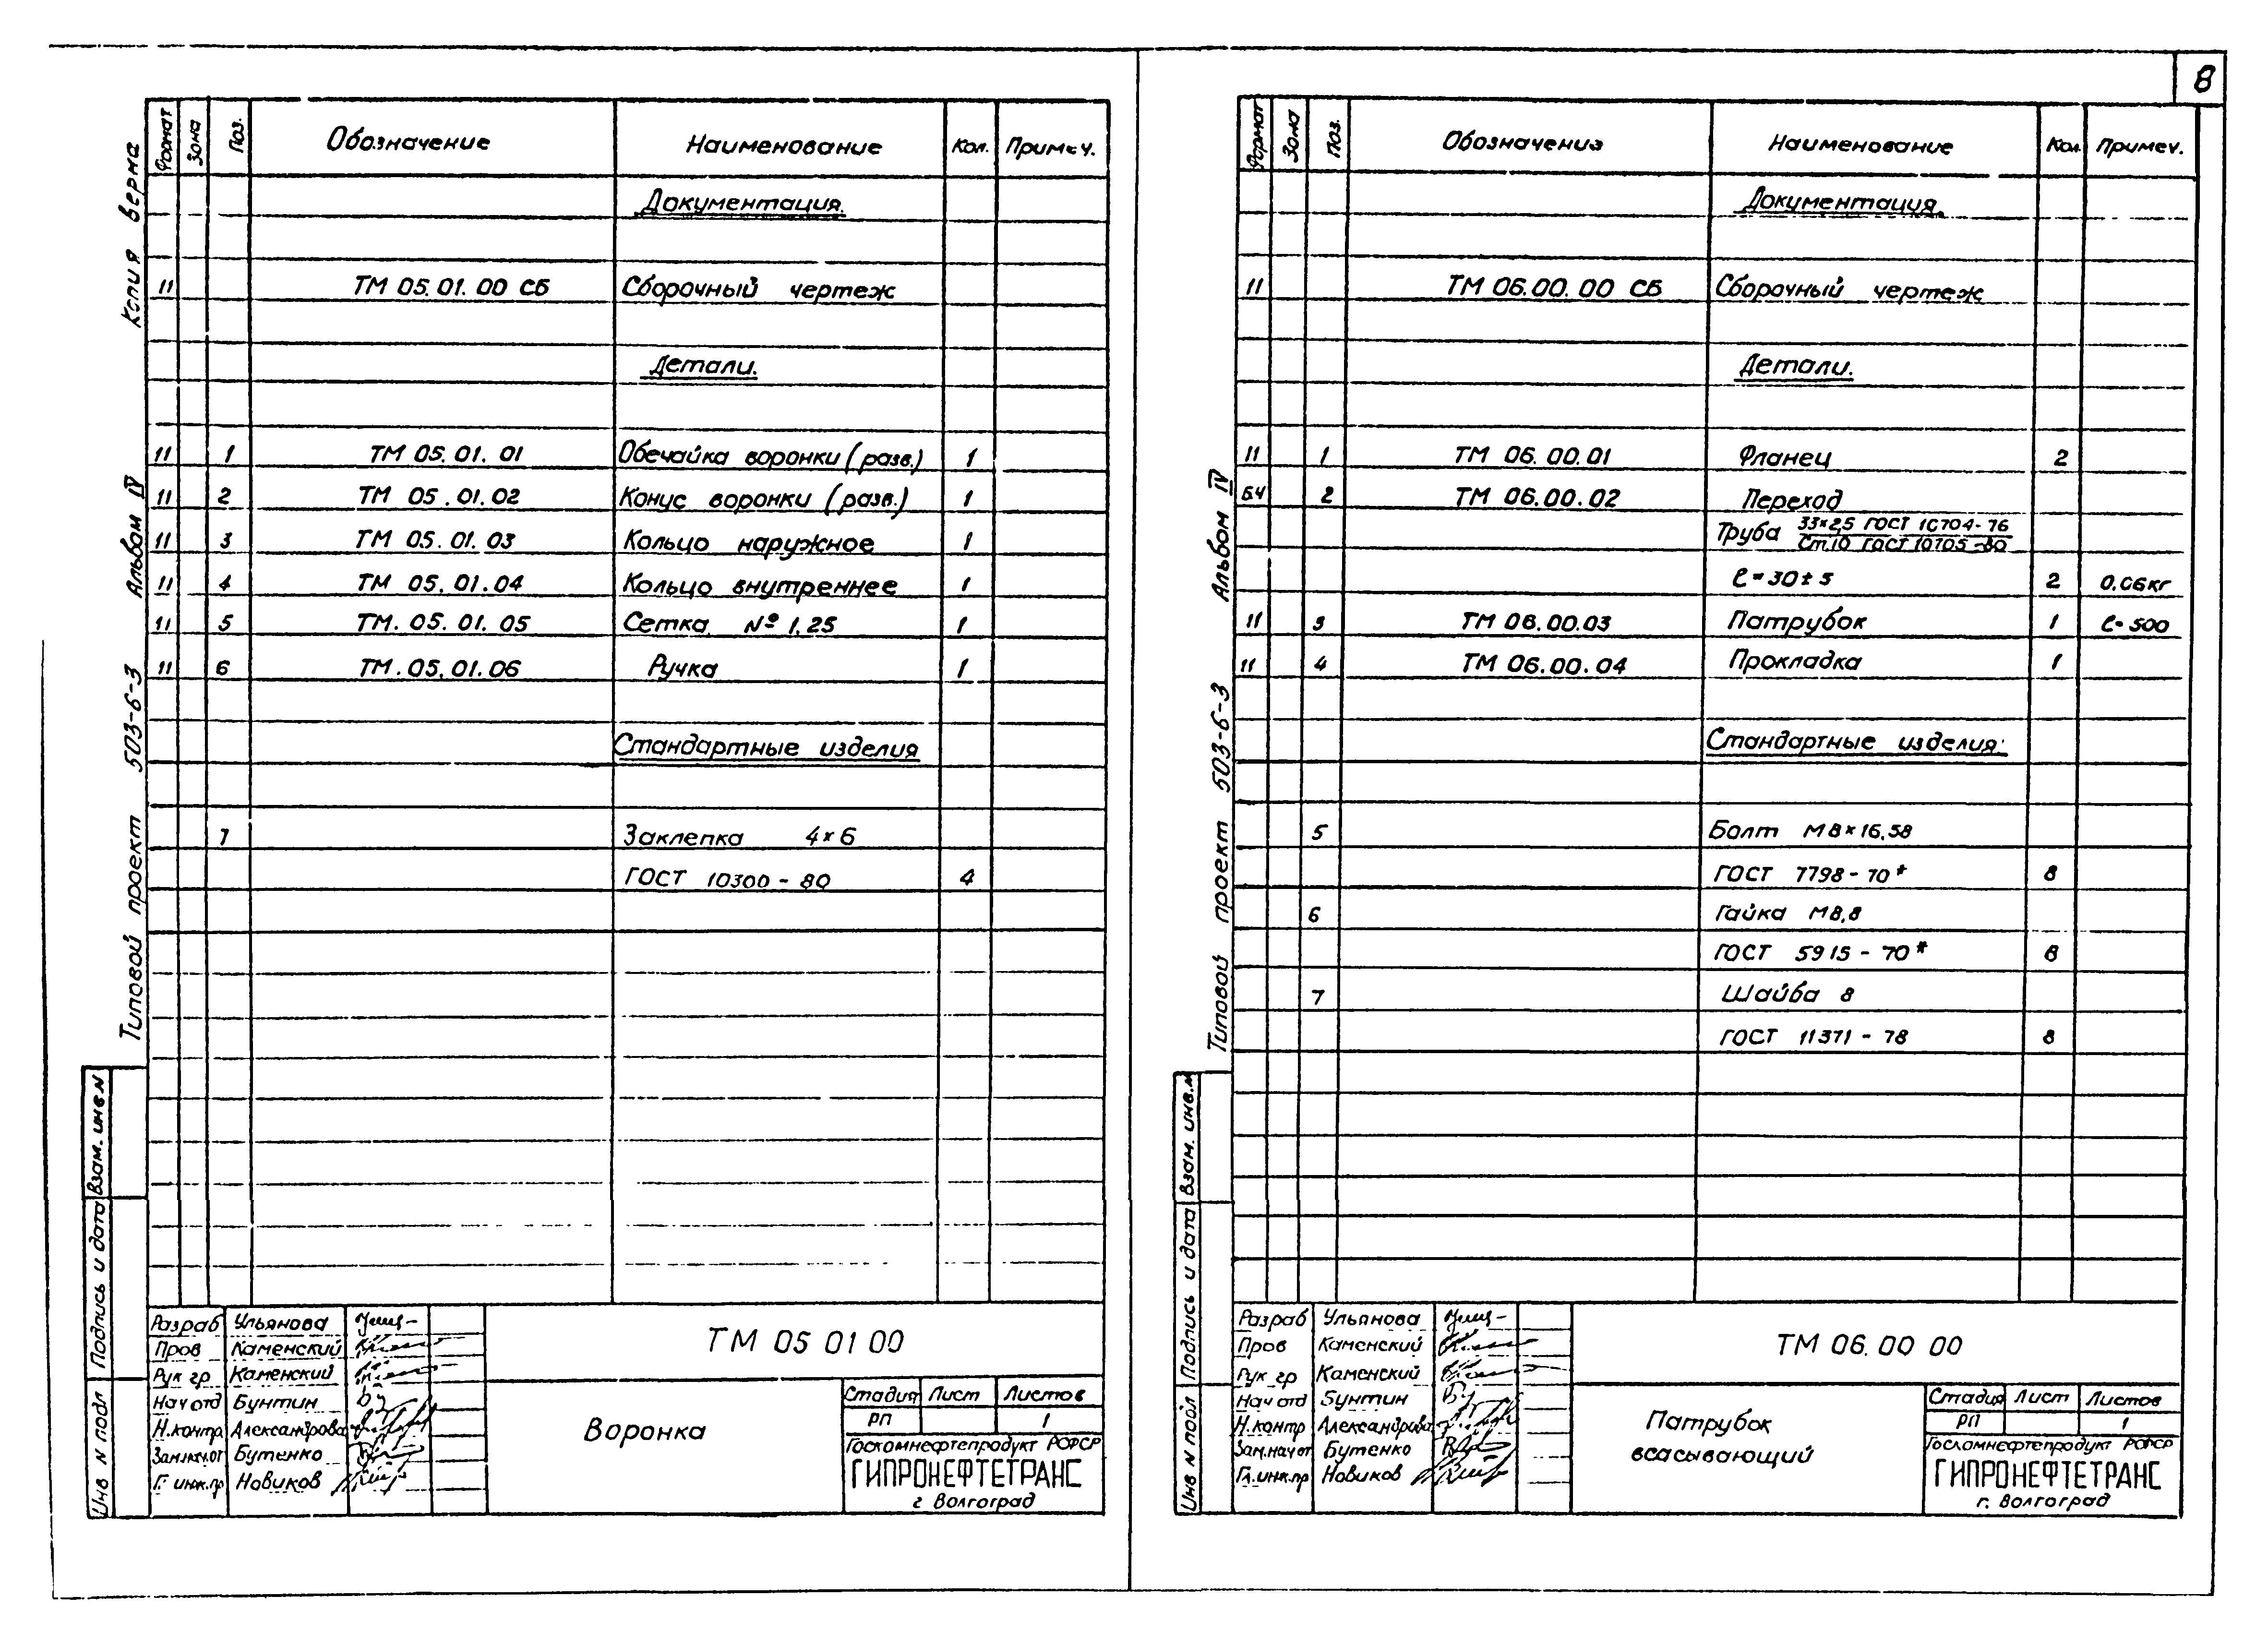 8
Копия верна
Типовой проект 503-6-3 Альбом IV
Формат Зона Поз. Обозначение Наименование Кол. Примеч.
Документация.
11 ТМ 05.01.00 СБ Сборочный чертеж
Детали.
11 1 ТМ 05.01.01 Обечайка воронки (разв.) 1
11 2 ТМ 05.01.02 Конус воронки (разв.) 1
11 3 ТМ 05.01.03 Кольцо наружное 1
11 4 ТМ 05.01.04 Кольцо внутреннее 1
11 5 ТМ. 05.01.05 Сетка № 1,25 1
11 6 ТМ. 05.01.06 Ручка 1
Стандартные изделия
7 Заклепка 4×6
ГОСТ 10300-80 4
Взам. инв N
Подпись и дата
Инв N подл
Разраб Ульянова
Пров Каменский
Рук гр Каменский
Нач отд Бунтин
Н.контр Александрова
Зам.нач.от Бутенко
Г. инж.пр Новиков
ТМ 05 01 00
Воронка
Стадия Лист Листов
РП 1
Госкомнефтепродукт РСФСР
ГИПРОНЕФТЕТРАНС
г Волгоград
Типовой проект 503-6-3 Альбом IV
Формат Зона Поз. Обозначение Наименование Кол. Примеч.
Документация.
11 ТМ 06.00.00 СБ Сборочный чертеж
Детали.
11 1 ТМ 06.00.01 Фланец 2
БЧ 2 ТМ 06.00.02 Переход
Труба 33×2,5 ГОСТ 10704-76
Ст.10 ГОСТ 10705-80
ℓ=30±5 2 0,06кг
11 3 ТМ 06.00.03 Патрубок 1 ℓ=500
11 4 ТМ 06.00.04 Прокладка 1
Стандартные изделия.
5 Болт М8×16,58
ГОСТ 7798-70* 8
6 Гайка М8,8
ГОСТ 5915-70* 8
7 Шайба 8
ГОСТ 11371-78 8
Взам. инв.N
Подпись и дата
Инв N подл
Разраб Ульянова
Пров Каменский
Рук гр Каменский
Нач отд Бунтин
Н.контр Александрова
Зам.нач от Бутенко
Гл.инж.пр Новиков
ТМ 06.00 00
Патрубок
всасывающий
Стадия Лист Листов
РП 1
Госкомнефтепродукт РСФСР
ГИПРОНЕФТЕТРАНС
г. Волгоград